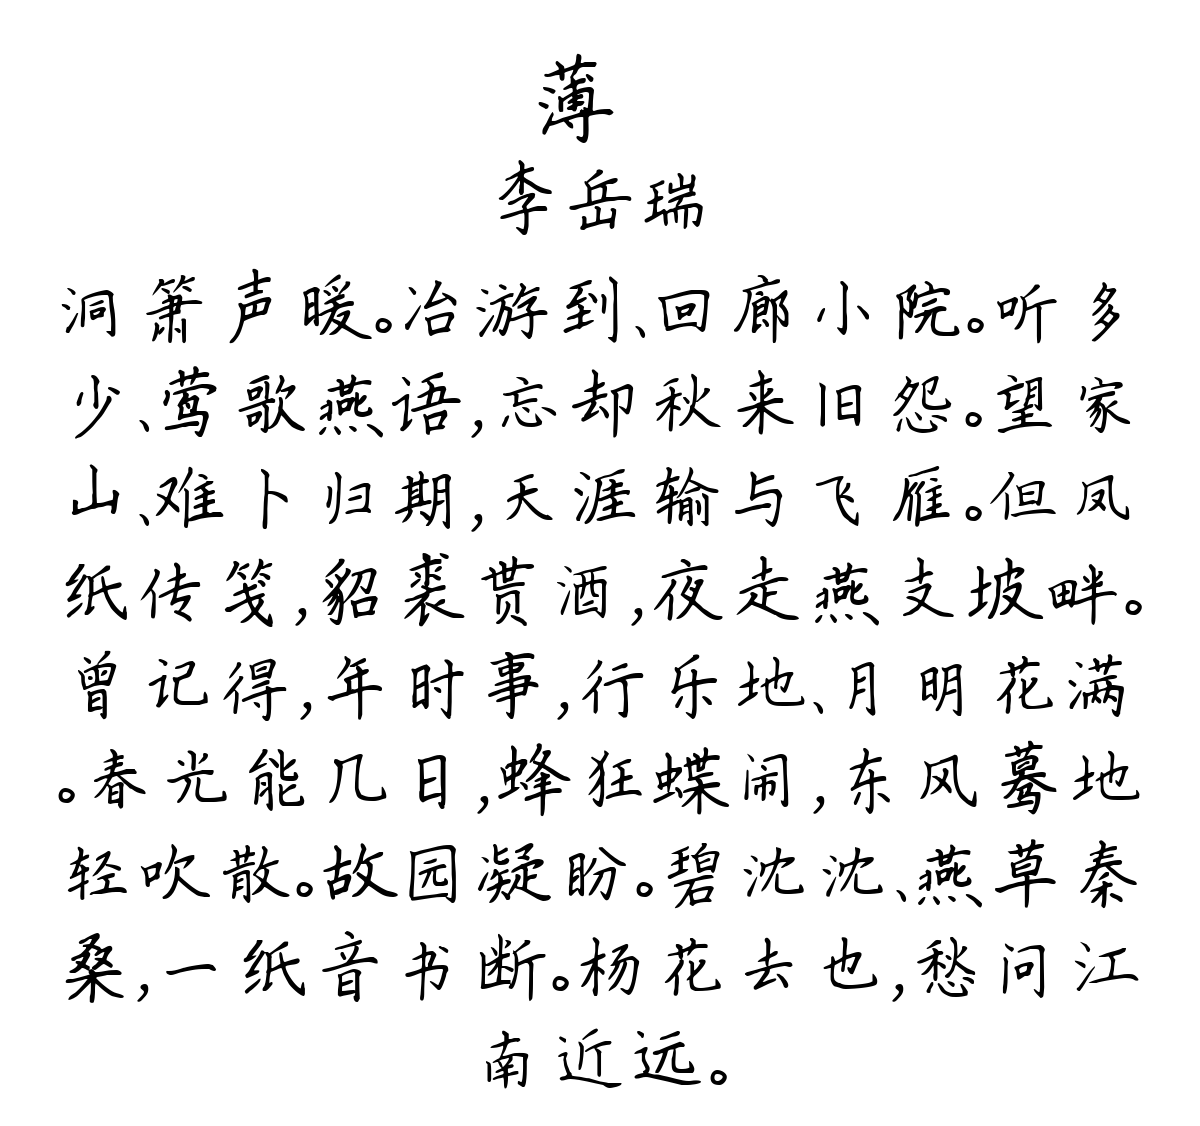 薄
李岳瑞
洞箫声暖。冶游到、回廊小院。听多
少、莺歌燕语,忘却秋来旧怨。望家
山、难卜归期,天涯输与飞雁。但凤
纸传笺,貂裘贳酒,夜走燕支坡畔。
曾记得,年时事,行乐地、月明花满
。春光能几日,蜂狂蝶闹,东风蓦地
轻吹散。故园凝盼。碧沈沈、燕草秦
桑,一纸音书断。杨花去也,愁问江
南近远。